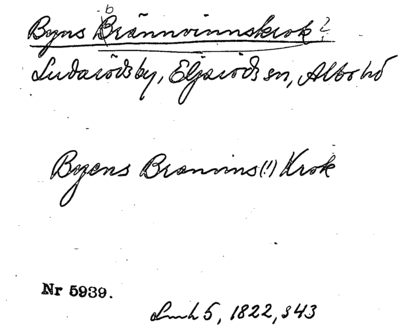 Byns Brännvinnskrok?
b
Ludarödsby, Eljaröds sn, Albo hd
Byens Branvins(!) Krok
Nr 5939.
Lmh 5, 1822, s 43